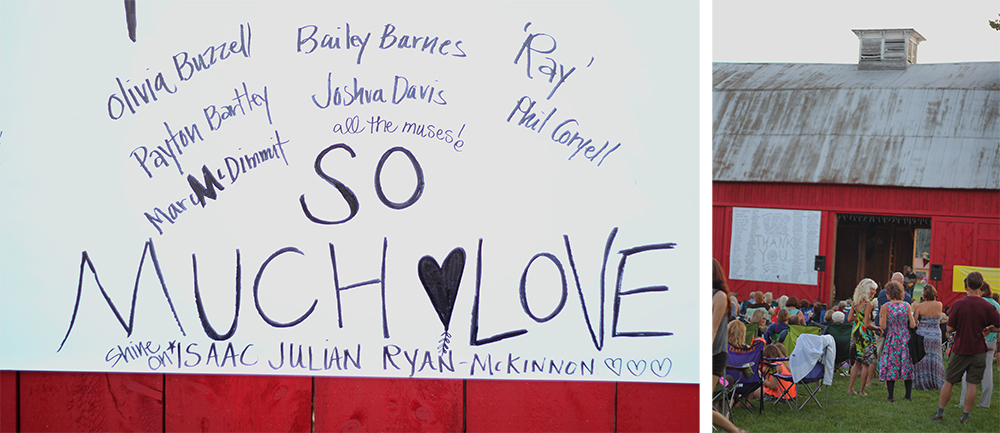 Olivia Buzzell
Bailey Barnes
'Ray'
Payton Bartley
Joshua Davis
Phil Coryell
Marc McDimmit
all the muses!
SO
MUCH LOVE
Shine on* ISAAC JULIAN RYAN-MCKINNON
THANK
YOU